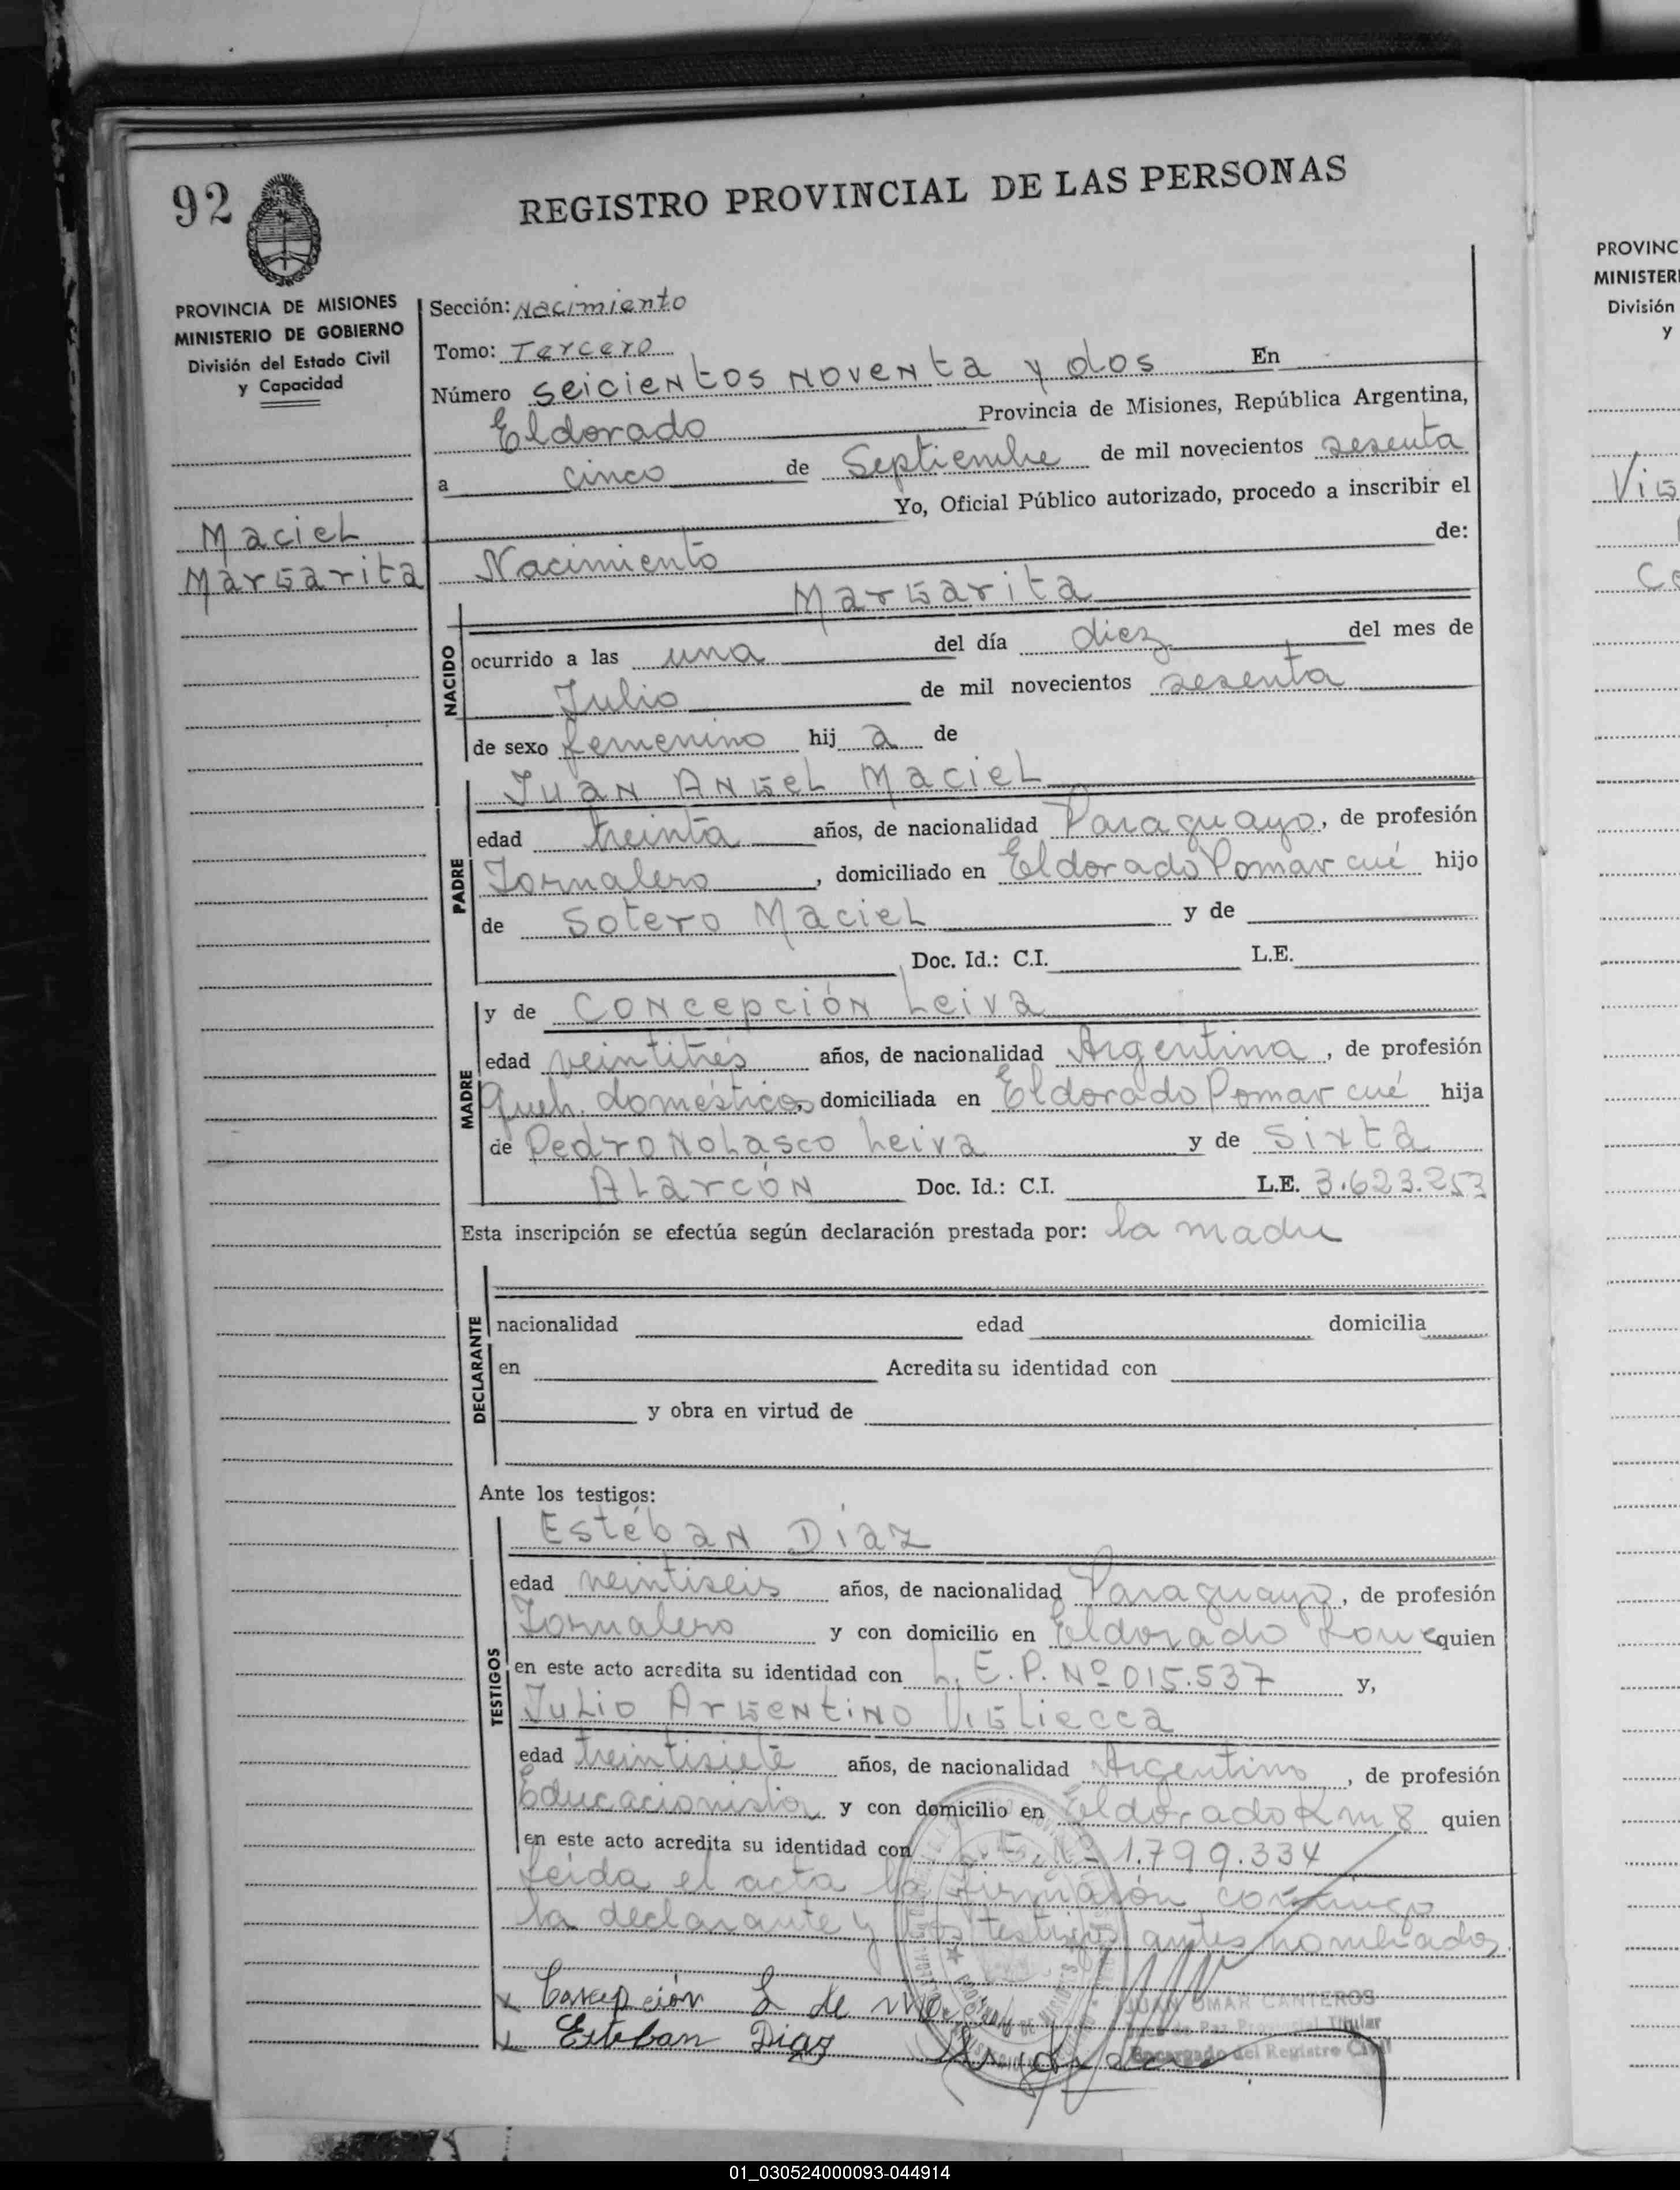 92
REGISTRO PROVINCIAL DE LAS PERSONAS
PROVINCIA DE MISIONES
MINISTERIO DE GOBIERNO
División del Estado Civil
y Capacidad
Maciel
Margarita
Sección: Nacimiento
Tomo: Tercero
Número seicientos noventa y dos En
Eldorado Provincia de Misiones, República Argentina,
a cinco de Septiembre de mil novecientos sesenta
Yo, Oficial Público autorizado, procedo a inscribir el
Nacimiento de:
Margarita
NACIDO
ocurrido a las una del día diez del mes de
Julio de mil novecientos sesenta
de sexo femenino hij a de
Juan Angel Maciel
PADRE
edad treinta años, de nacionalidad Paraguayo, de profesión
Jornalero, domiciliado en Eldorado Pomar cué hijo
de Sotero Maciel y de
Doc. Id.: C.I. L.E.
MADRE
y de Concepción Leiva
edad veintitrés años, de nacionalidad Argentina, de profesión
Queh. domésticos, domiciliada en Eldorado Pomar cué hija
de Pedro Nolasco Leiva y de Sixta
Alarcón Doc. Id.: C.I. L.E. 3.623.253
Esta inscripción se efectúa según declaración prestada por: la madre
DECLARANTE
nacionalidad edad domicilia
en Acredita su identidad con
y obra en virtud de
Ante los testigos:
TESTIGOS
Estéban Díaz
edad veintiseis años, de nacionalidad Paraguayo, de profesión
Jornalero y con domicilio en Eldorado quien
en este acto acredita su identidad con L.E.P. Nº 015.537 y,
Julio Argentino Vigliecca
edad treintisiete años, de nacionalidad Argentino, de profesión
Educacionista y con domicilio en Eldorado Km 8 quien
en este acto acredita su identidad con 1.799.334
Leida el acta la firmarón conmigo
la declarante y los testigos antes nombrados
x Concepción L de
x Esteban Diaz
JUAN OMAR CANTEROS
Juez de Paz Provincial Titular
Encargado del Registro Civil
PROVINC
MINISTERI
División
y
Vig
01_030524000093-044914